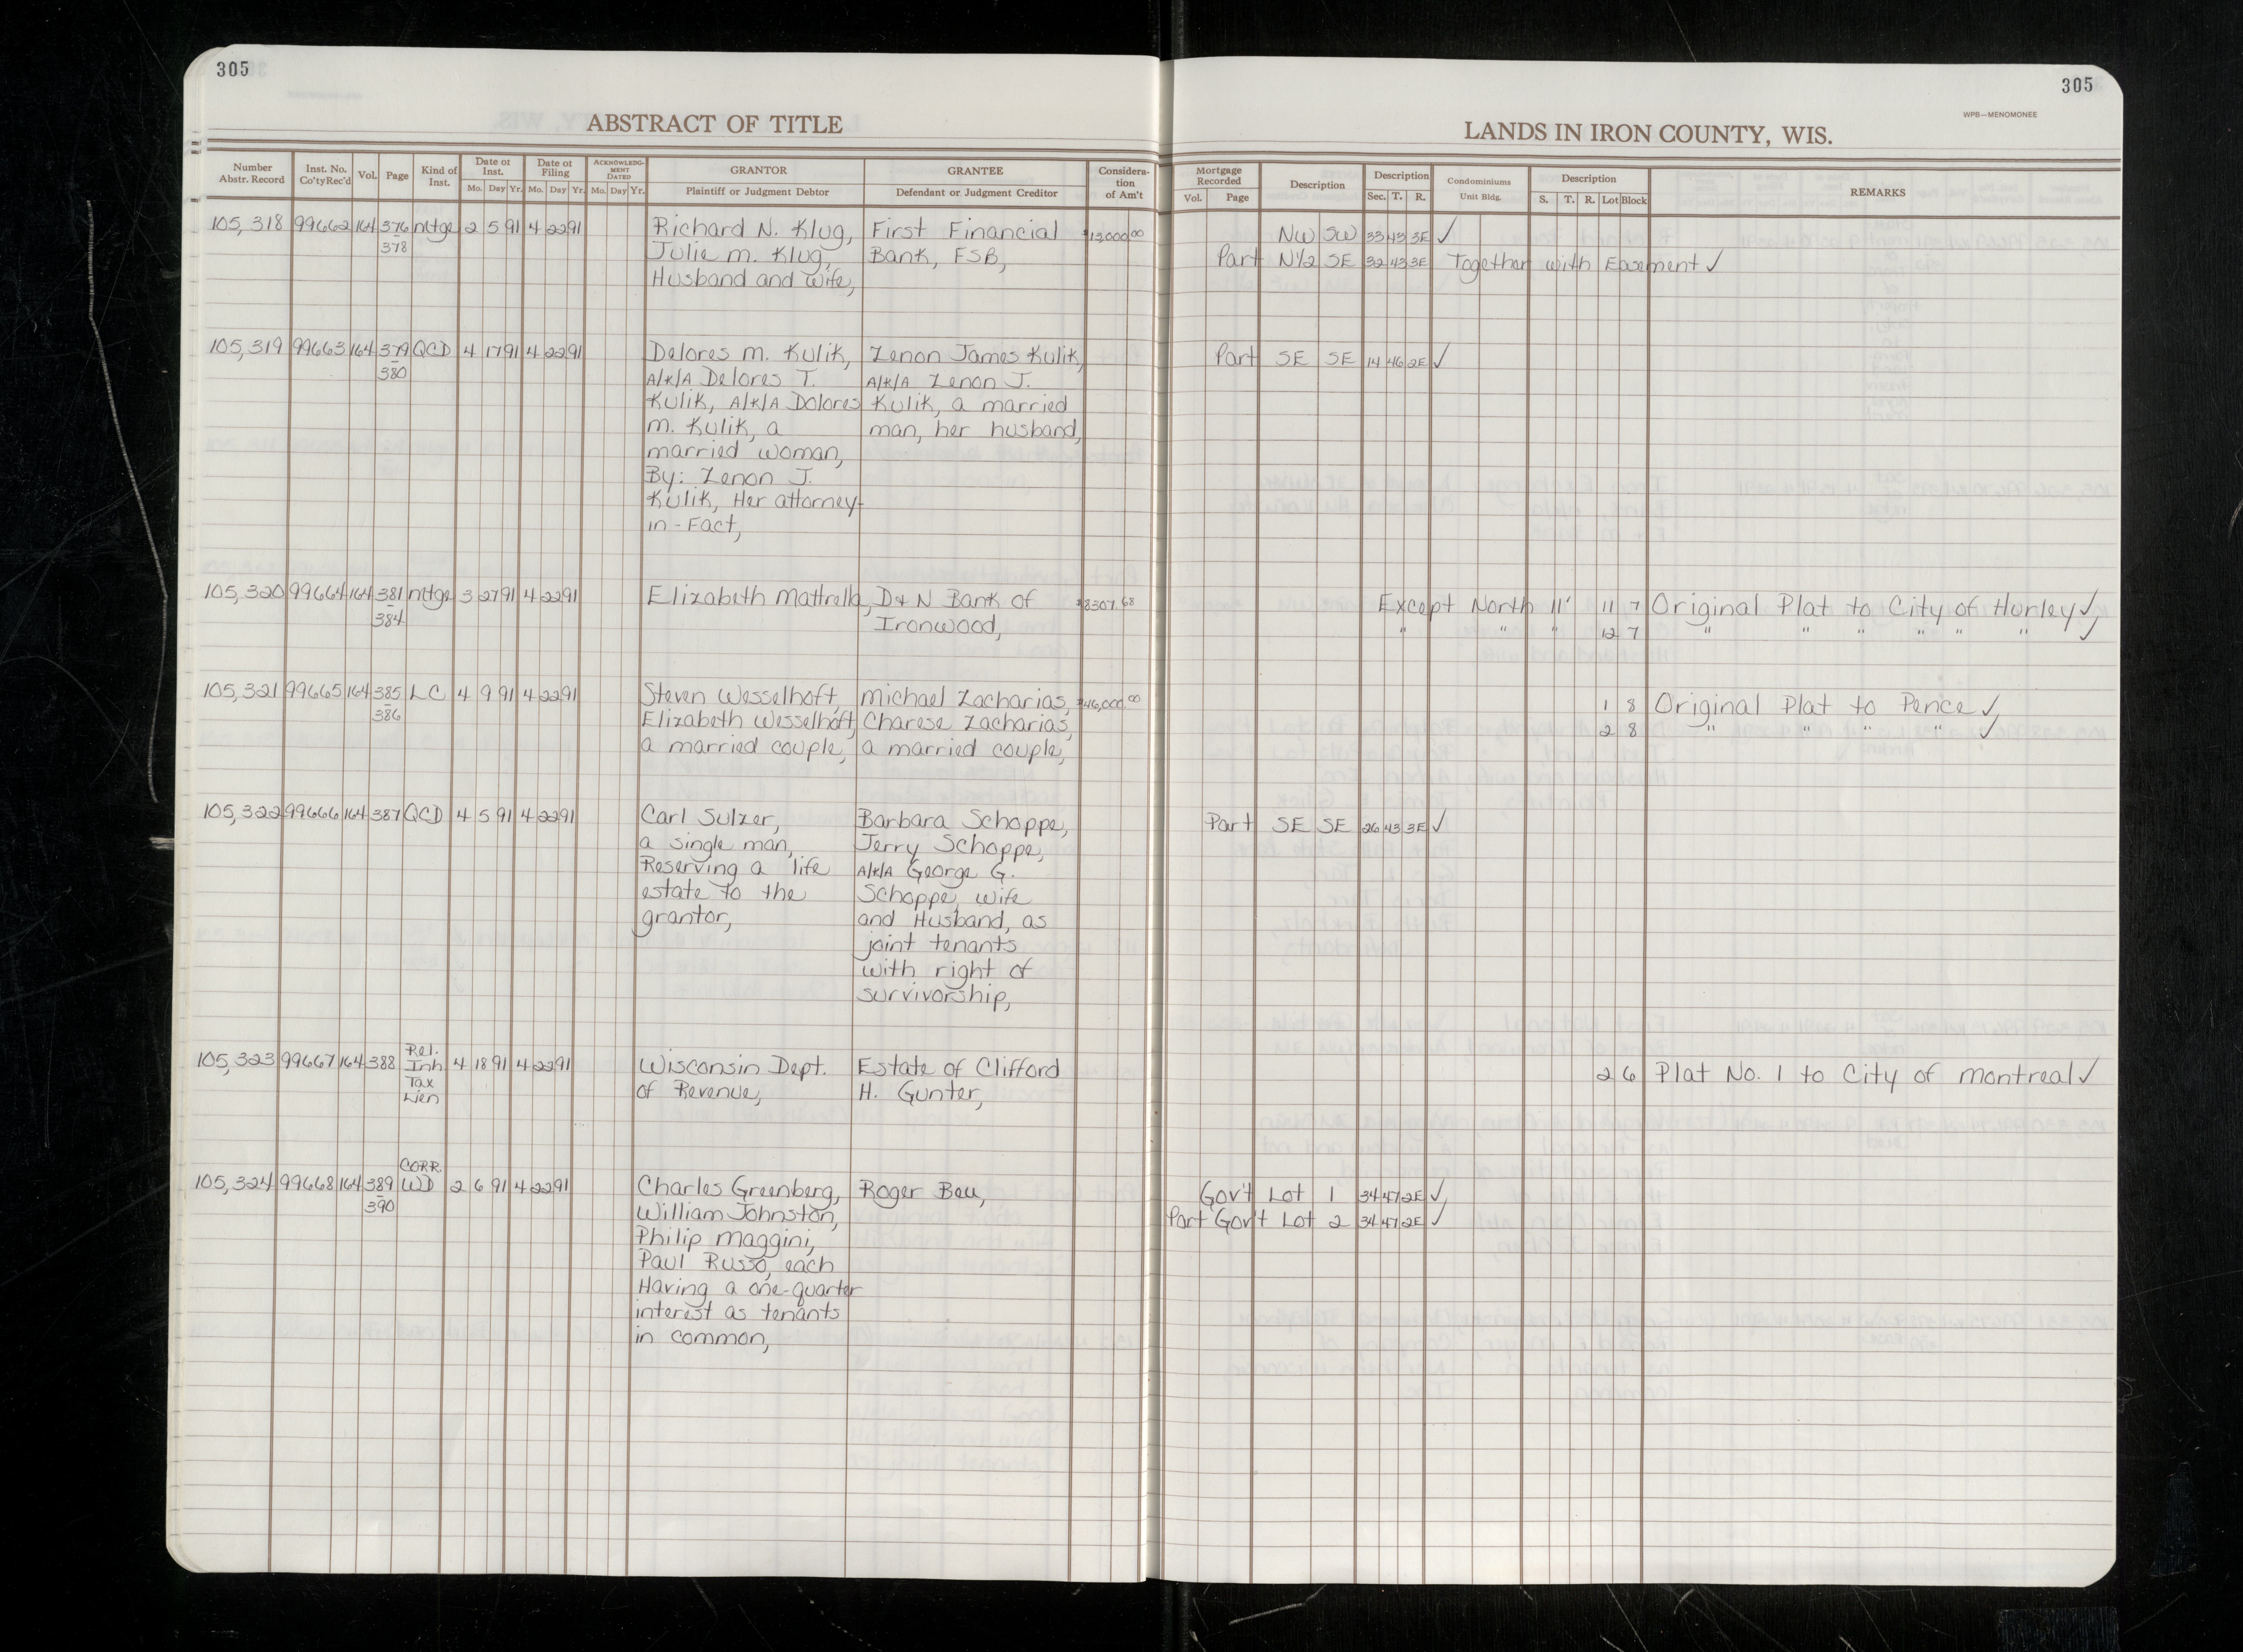 305
305
WPB—MENOMONEE
ABSTRACT OF TITLE
LANDS IN IRON COUNTY, WIS.
Number Abstr. Record
Inst. No. Co'tyRec'd
Vol.
Page
Kind of Inst.
Date of Inst.
Mo. Day Yr.
Date of Filing
Mo. Day Yr.
ACKNOWLEDGMENT DATED
Mo. Day Yr.
GRANTOR
Plaintiff or Judgment Debtor
GRANTEE
Defendant or Judgment Creditor
Consideration of Am't
Mortgage Recorded
Vol. Page
Description
Description
Sec. T. R.
Condominiums
Unit Bldg.
Description
S. T. R. Lot Block
REMARKS
105,318 99662 164 376 Mtge 2 5 91 4 22 91 Richard N. Klug, First Financial $13,000.00 NW SW 33 43 3E ✓
378 Julie M. Klug, Bank, FSB, Part N1/2 SE 32 43 3E Together with Easement ✓
Husband and Wife,
105,319 99663 164 379 QCD 4 17 91 4 22 91 Delores M. Kulik, Zenon James Kulik, Part SE SE 14 46 2E ✓
380 A/K/A Delores T. A/K/A Zenon J.
Kulik, A/K/A Dolores Kulik, a married
M. Kulik, a man, her husband,
married woman,
By: Zenon J.
Kulik, Her attorney-
in-Fact,
105,320 99664 164 381 Mtge 3 27 91 4 22 91 Elizabeth Mattrella, D & N Bank of $8307.68 Except North 11' 11 7 Original Plat to City of Hurley ✓
384 Ironwood, " " " 12 7 " " " " " " ✓
105,321 99665 164 385 LC 4 9 91 4 22 91 Steven Wesselhoft, Michael Zacharias, $46,000.00 1 8 Original Plat to Pence ✓
386 Elizabeth Wesselhoft, Charese Zacharias, 2 8 " " " " ✓
a married couple, a married couple,
105,322 99666 164 387 QCD 4 5 91 4 22 91 Carl Sulzer, Barbara Schoppe, Part SE SE 26 43 3E ✓
a single man, Jerry Schoppe,
Reserving a life A/K/A George G.
estate to the Schoppe, wife
grantor, and Husband, as
joint tenants
with right of
survivorship,
105,323 99667 164 388 Rel. Inh. Tax Lien 4 18 91 4 22 91 Wisconsin Dept. Estate of Clifford 2 6 Plat No. 1 to City of Montreal ✓
of Revenue, H. Gunter,
105,324 99668 164 389 CORR. WD 2 6 91 4 22 91 Charles Greenberg, Roger Beu, Gov't Lot 1 34 47 2E ✓
390 William Johnston, Part Gov't Lot 2 34 47 2E ✓
Philip Maggini,
Paul Russo, each
Having a one-quarter
interest as tenants
in common,